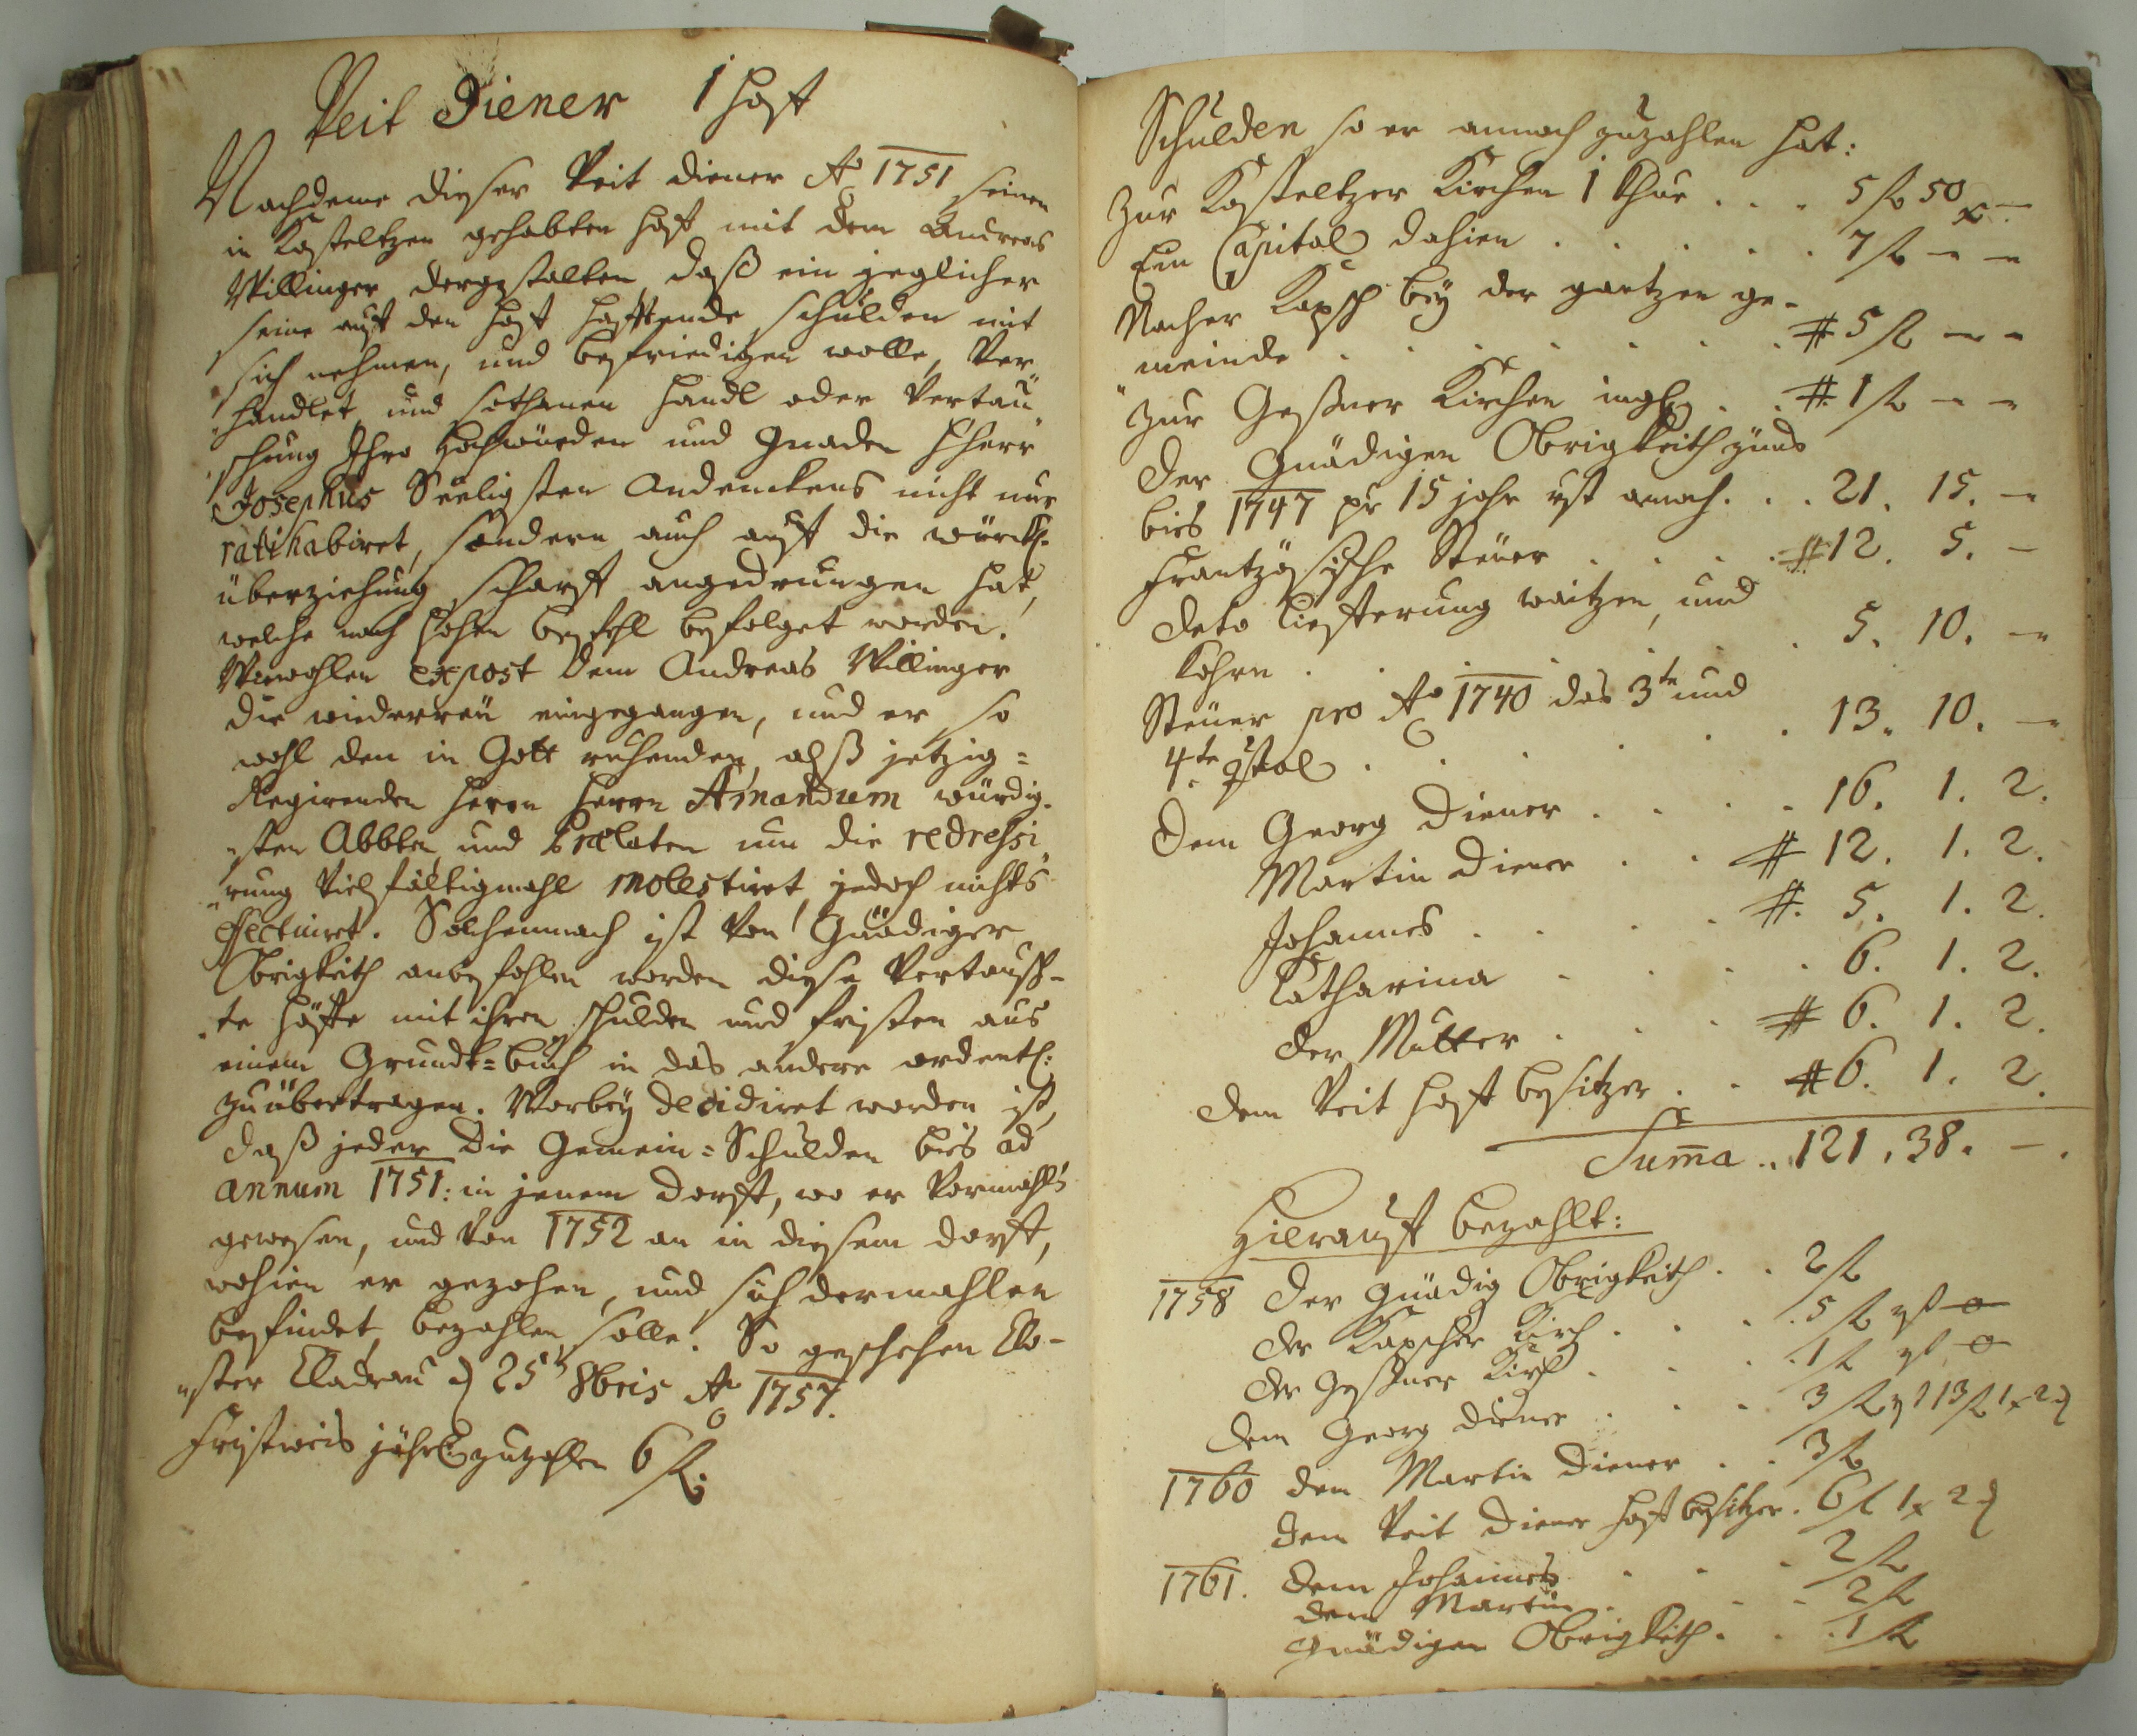 Veit Diener 1 Hoff
Nachdeme dieser Veit Diener Ao 1751 seinen
in Kosteltzen gehabten Hoff mit dem Andreas
Willinger dergestalten, daß ein jeglicher
seine auff den Hoff hafftende schulden mit
sich nehmen, und befriedigen wolle, Ver-
handlet, und sothanen Handl oder Vertau-
schung Ihro Hochwürden und Gnaden HHerr
Josephus Seeligsten Andenckens nicht nur
ratihabiret, sondern auch auff die würckl.
überziehung scharff angedrungen hat,
welche nach hohen befehl befolget worden.
Wiewohlen ex post dem Andreas Willinger
die wiederreü eingegangen, und er so
wohl den in Gott ruhenden, alß jetzig=
Regirenden Herrn Herrn Amandum würdig-
sten Abbten, und Prælaten um die redressi-
rung Vielfältigmahl molestiret, jedoch nichts
effectuiret. Solchemnach ist Von Gnädiger
Obrigkeith anbefohlen worden diese Vertausch-
te Höffe mit ihren schulden und fristen aus
einem Grundt=buch in das andere ordentl:
zuübertragen. Worbey decidiret worden ist,
daß jeder die Gemein=Schulden bis ad
annum 1751: in jenem Dorff, wo er Vormahls
gewesen, und Von 1752 an in diesem dorff,
wohien er gezohen, und sich dermahlen
befindet, bezahlen solle. So geschehen Clo-
ster Cladrau d 25t 8bris Ao 1757.
Fristweis jährl: zuzahlen 6 fl:
Schulden so er annoch zuzahlen hat:
Zur Kosteltzer Kirchen 1 Khue . . . 5 fl 50 x –
Ein Capital dahien . . . . . 7 fl – –
Nacher Kapsch bey der gantzen ge-
meinde . . . . . . . # 5 fl – –
Zur Geßner Kirchen ingl. . . # 1 fl – –
Der Gnädigen Obrigkeith zins
bies 1747 pr 15 jahr ist annoch. . . 21. 15. –
Frantzösische Steuer . . . . # 12. 5. –
Deto Liefferung waitzen, und
Kohrn . . . . . . 5. 10. –
Steuer pro Ao 1740 das 3te und
4te qrtal . . . . . . 13. 10. –
Dem Georg Diener . . . . 16. 1. 2.
Martin Diener . . # 12. 1. 2.
Johannes . . . . #. 5. 1. 2.
Catharina . . . . 6. 1. 2.
der Mutter . . . # 6. 1. 2.
dem Veit Hoff besitzer . . # 6. 1. 2.
Sum̄a .. 121. 38. – .
Hierauff bezahlt:
1758 Der Gnädig Obrigkeith . . 2 fl
der Kapscher Kirch . . . . 5 fl rst 0
der Geßner Kirch . . . . 1 fl rst 0
dem Georg Diener . . . . 3 fl rst 13 fl 1 x 2 d
1760 dem Martin Diener . . 3 fl
dem Veit Diener Hoff besitzer . 6 fl 1 x 2 d
1761. dem Johannes . . . 2 fl
dem Martin . . . . 2 fl
Gnädigen Obrigkeith . . . 1 fl